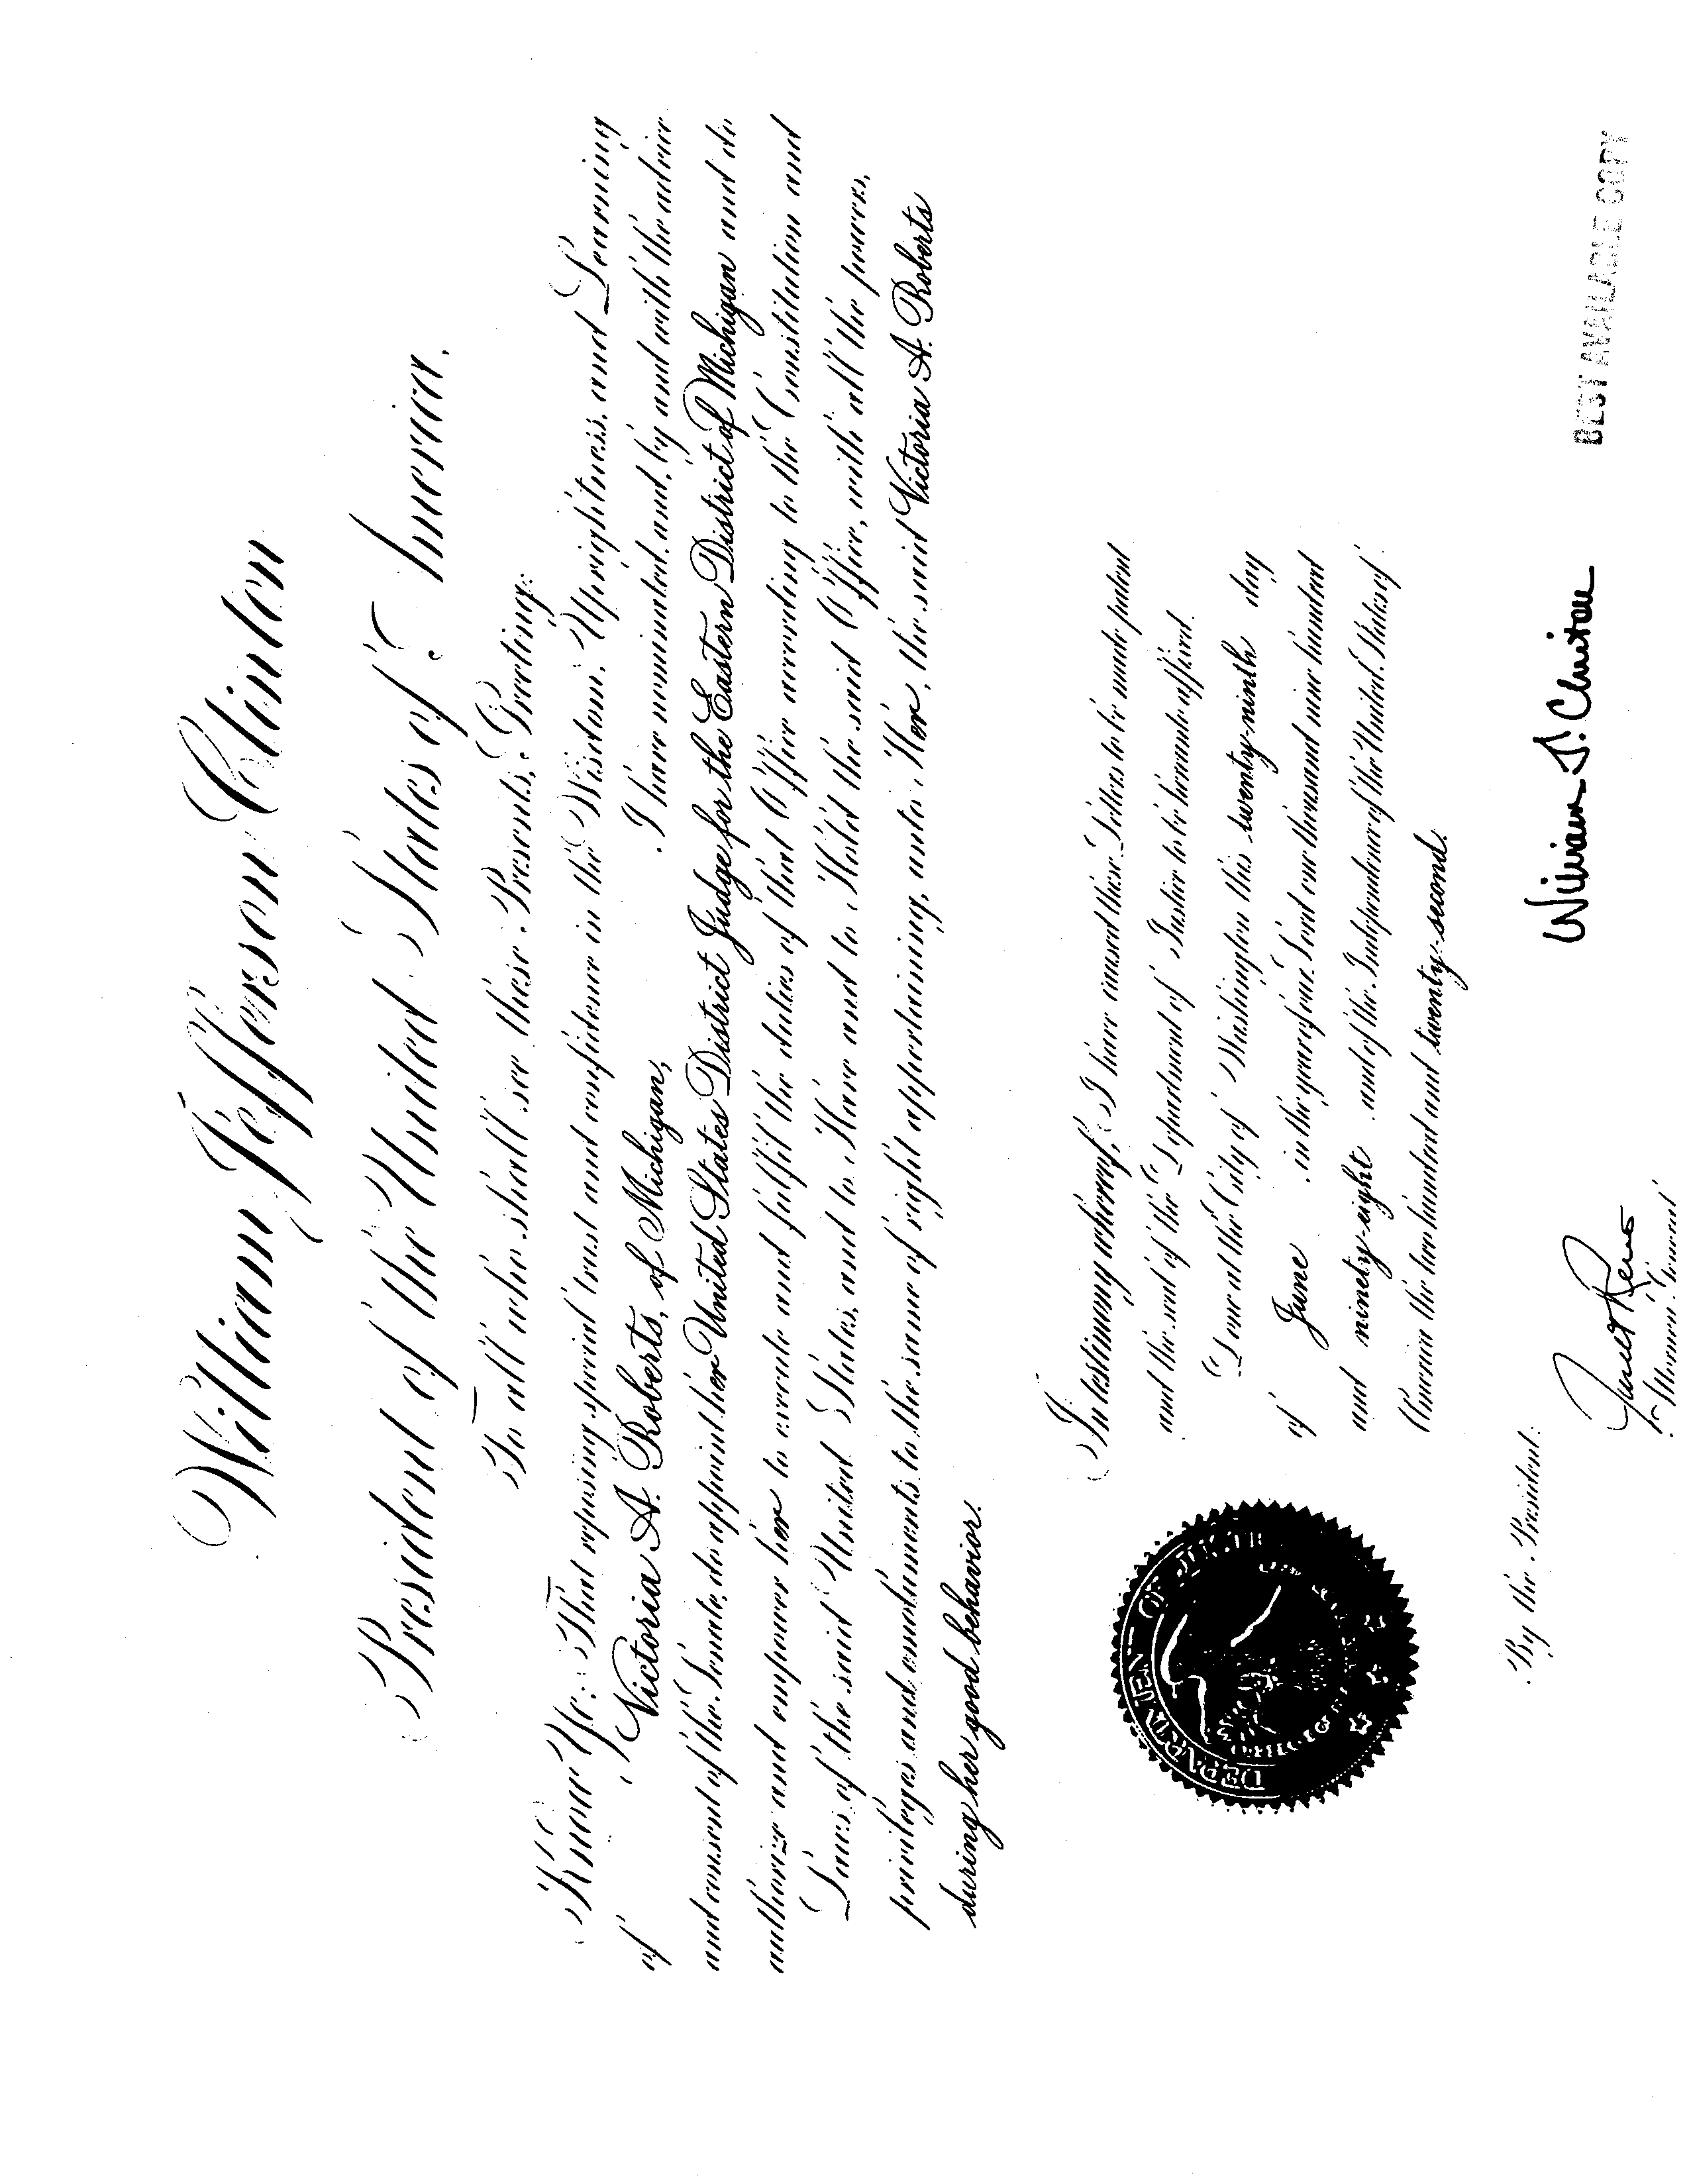 William Jefferson Clinton
President of the United States of America.
To all who shall see these Presents, Greeting:
Know Ye: That reposing special trust and confidence in the Wisdom, Uprightness, and Learning
of Victoria A. Roberts, of Michigan, I have nominated, and, by and with the advice
and consent of the Senate, do appoint her United States District Judge for the Eastern District of Michigan and do
authorize and empower her to execute and fulfil the duties of that Office according to the Constitution and
Laws of the said United States, and to Have and to Hold the said Office, with all the powers,
privileges and emoluments to the same of right appertaining, unto Her, the said Victoria A. Roberts
during her good behavior.
In testimony whereof, I have caused these Letters to be made patent
and the seal of the Department of Justice to be hereunto affixed.
Done at the City of Washington this twenty-ninth day
of June in the year of our Lord one thousand nine hundred
and ninety-eight and of the Independence of the United States of
America the two hundred and twenty-second.
DEPARTMENT OF JUSTICE
William J. Clinton
By the President:
Janet Reno
Attorney General
BEST AVAILABLE COPY